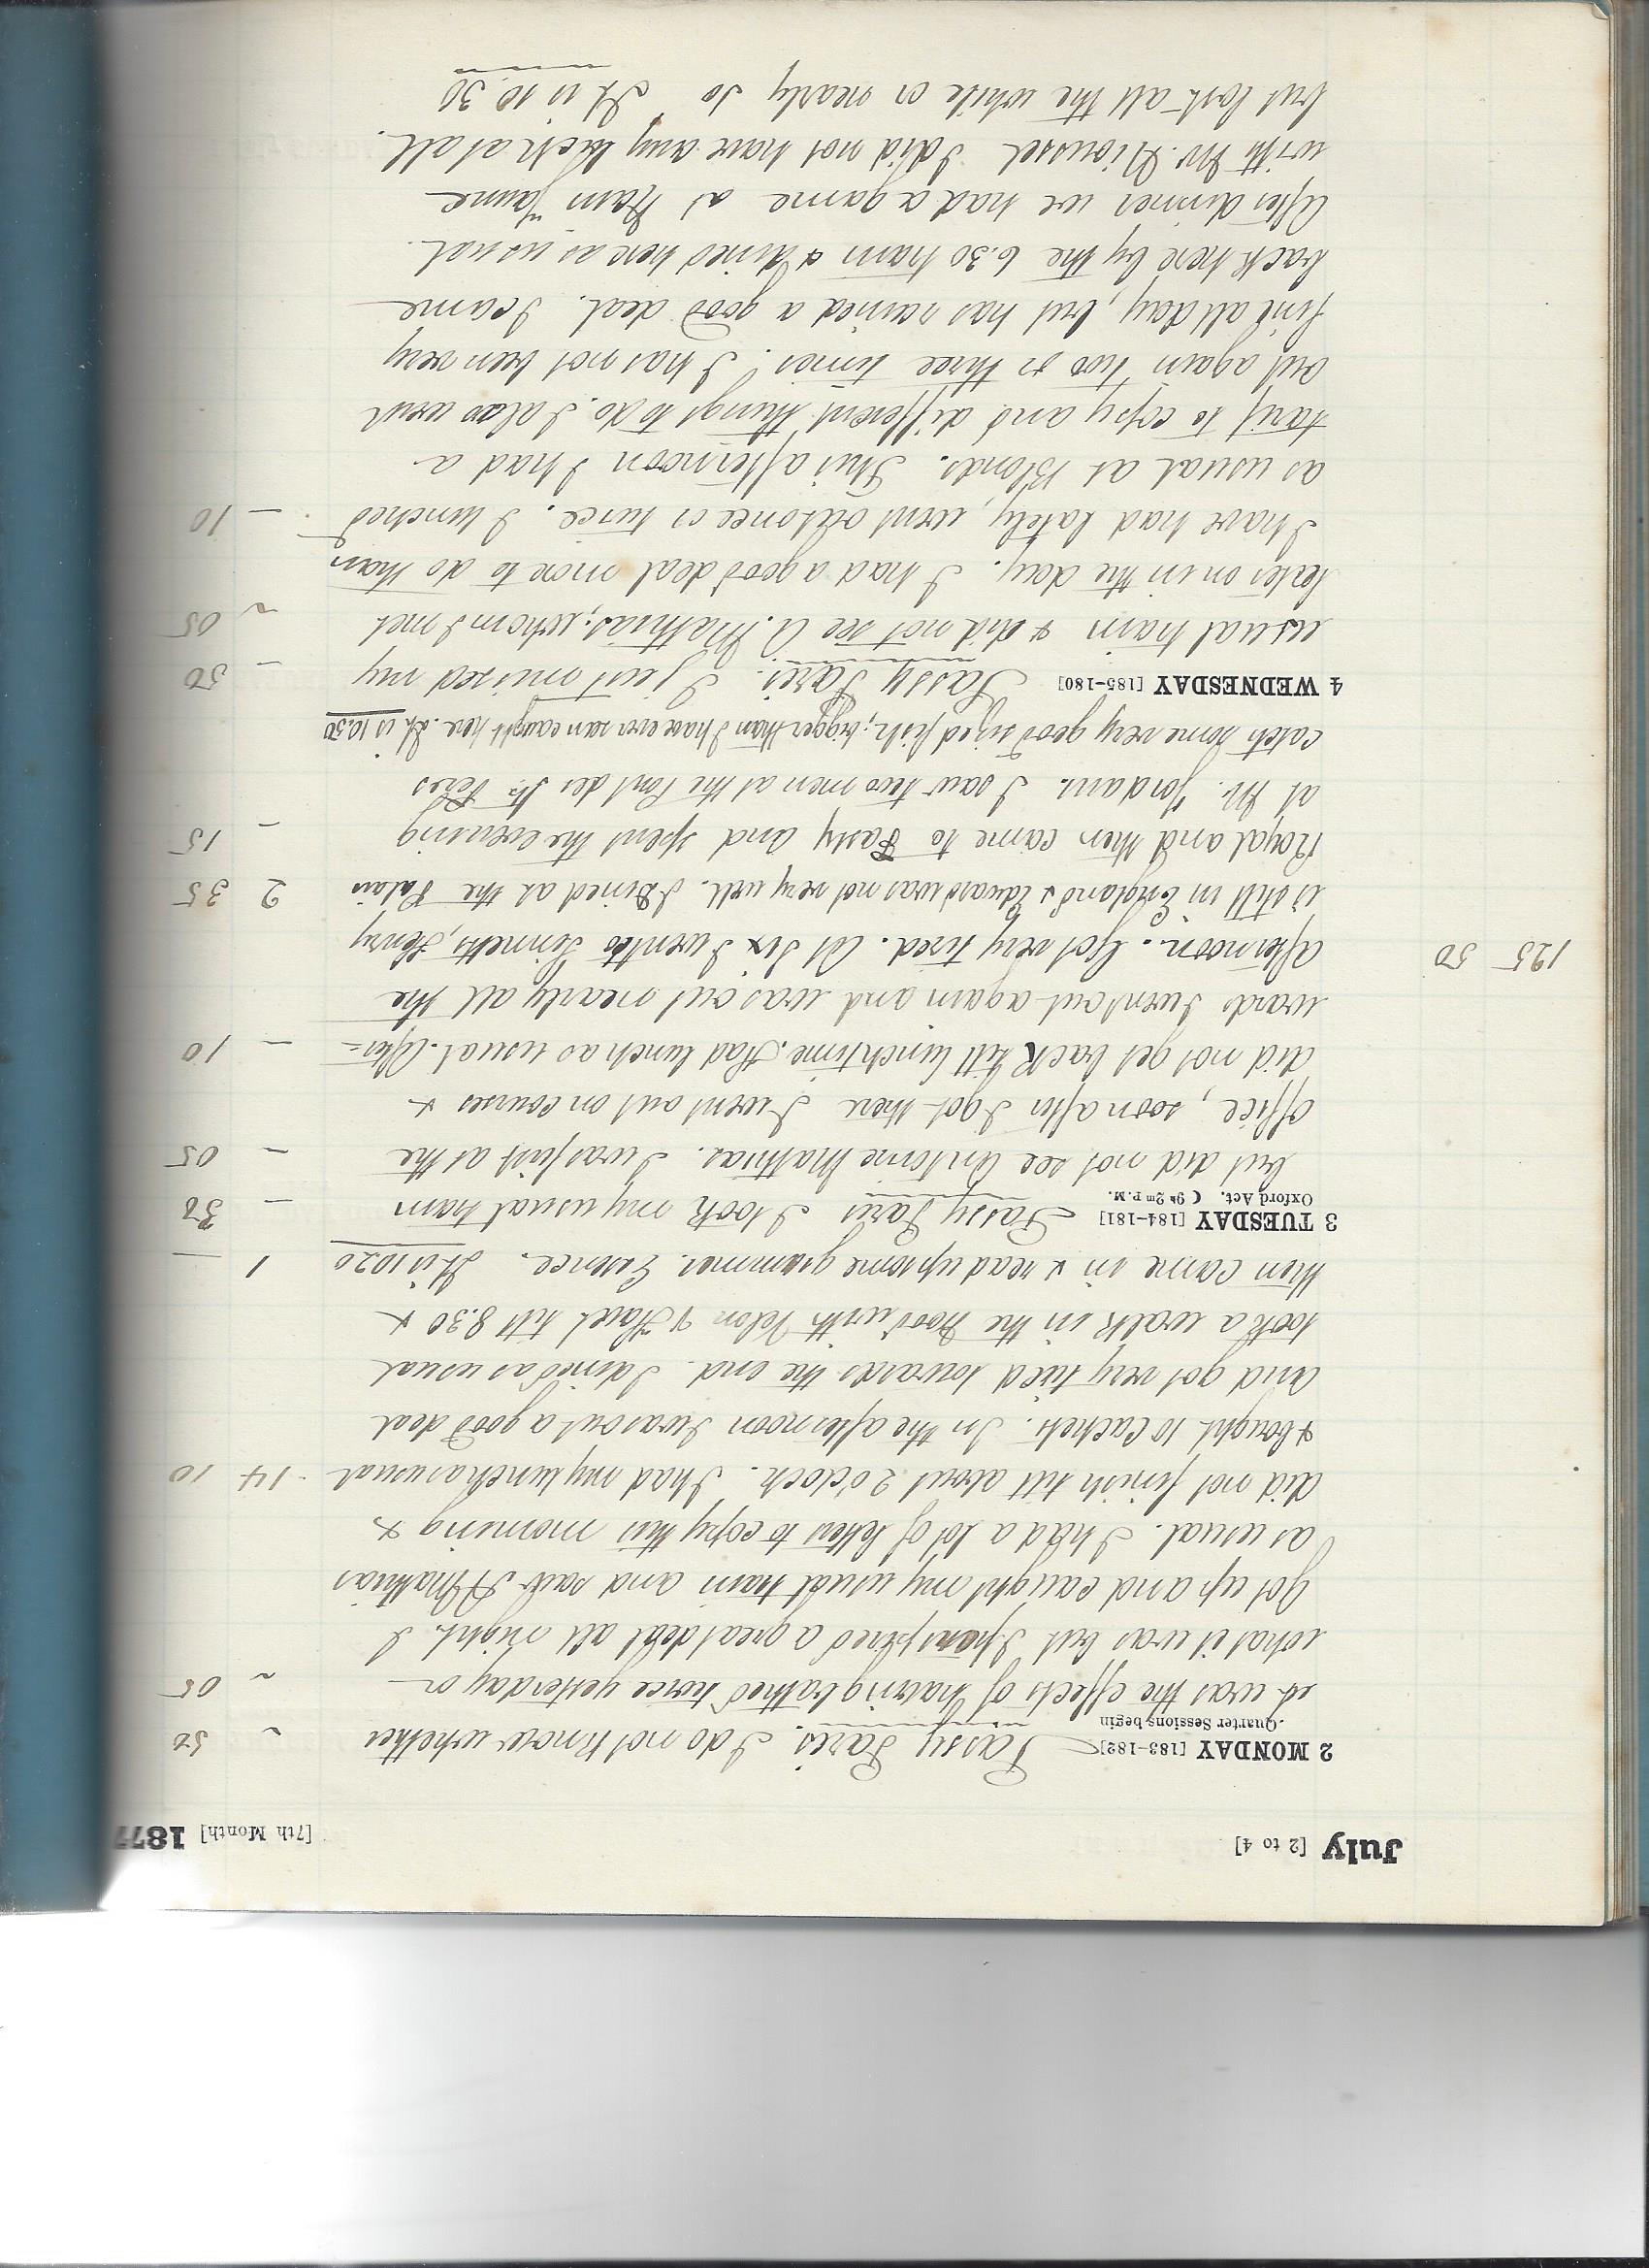 July [2 to 4] [7th Month] 187
2 MONDAY [183-182] Passy Paris. I do not know whether ~ 50
Quarter Sessions begin.
it was the effects of having bathed twice yesterday or ~ 05
what it was but I perspired a great deal all night. I
got up and caught my usual train and saw A Mathias
as usual. I had a lot of letters to copy this morning &
did not finish till about 2 oclock. I had my lunch as usual - 14 10
& bought 10 Cachets. In the afternoon I was out a good deal
and got very tired towards the end. I dined as usual
took a walk in the Wood with & till 8.30 &
then came in & read up some grammer. Essence. It is 10.20 1 —
3 TUESDAY [184-181] Passy Paris I took my usual train — 30
Oxford Act. ☾ 9h 2m P.M.
but did not see Antoine Mathias. I was just at the — 05
office, soon after I got there I went out on courses &
did not get back till lunchtime. Had lunch as usual. After= — 10
wards I went out again and was out nearly all the
125 50 Afternoon. Got very tired. At Six I went to Henry
is still in England & Edward was not very well. I dined at the Palais 2 35
Royal and then came to Passy and spent the evening — 15
at Mr. Jordans. I saw two men at the Pont des Sts Pères
catch some very good sized fish, bigger than I have ever seen caught here. It is 10.50
4 WEDNESDAY [185-180] Passy Paris. I just missed my — 50
usual train & did not see A. Mathias, whom I met ~ 05
later on in the day. I had a good deal more to do than
I have had lately, went out once or twice. I lunched — 10
as usual at Blonds. This afternoon I had a
tarif to copy and different things to do. I also went
out again two or three times. I has not been very
fine all day, but has rained a good deal. I came
back here by the 6.30 train & dined here as usual.
After dinner we had a game at Nain Jaune
with Mr. I did not have any luck at all.
but lost all the while or nearly so It is 10.30